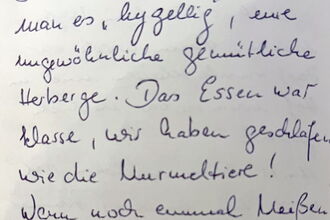 man es „hyggellig, eine
ungewöhnliche gemütliche
Herberge. Das Essen war
klasse, wir haben geschlafen
wie die Murmeltiere!
Wenn noch einmal Meißen